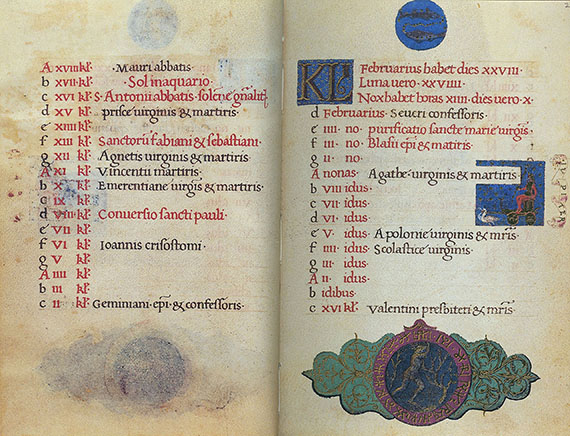 A xvii kl· Mauri abbatis·
b xvi kl· Sol in aquario·
c xvi kl· S· Antonii abbatis· solēne gn̄alitq̄
d xv kl· prisce virginis & martiris·
e xiiii kl·
f xiii kl· Sanctorū fabiani & sebastiani·
g xii kl· Agnetis uirginis & martiris·
A xi kl· Vincentii martiris·
b x kl· Emerentiane uirgīs & martiris·
c ix kl·
d viii kl· Conuersio sancti pauli·
e vii kl·
f vi kl· Ioannis crisostomi·
g v kl·
A iiii kl·
b iii kl·
c ii kl· Geminiani· ep̄i· & confessoris·
2
KL Februarius habet dies xxviii·
Luna uero· xxviiii·
Nox habet horas xiiii· dies uero· x·
d Februarius· Seueri confessoris·
e iiii· no· purificatio sancte marie uirgīs·
f iii· no· Blasii ep̄i & matiris·
g ii· no·
A nonas· Agathe· uirginis & martiris
b viii idus·
c vii· idus·
d vi· idus·
e v· idus· Apolonie uirginis & mr̄is·
f iiii· idus· Scolastice uirginis·
g iii· idus·
A ii· idus·
b idibus·
c xvi kl· Valentini presbiteri & mr̄is·